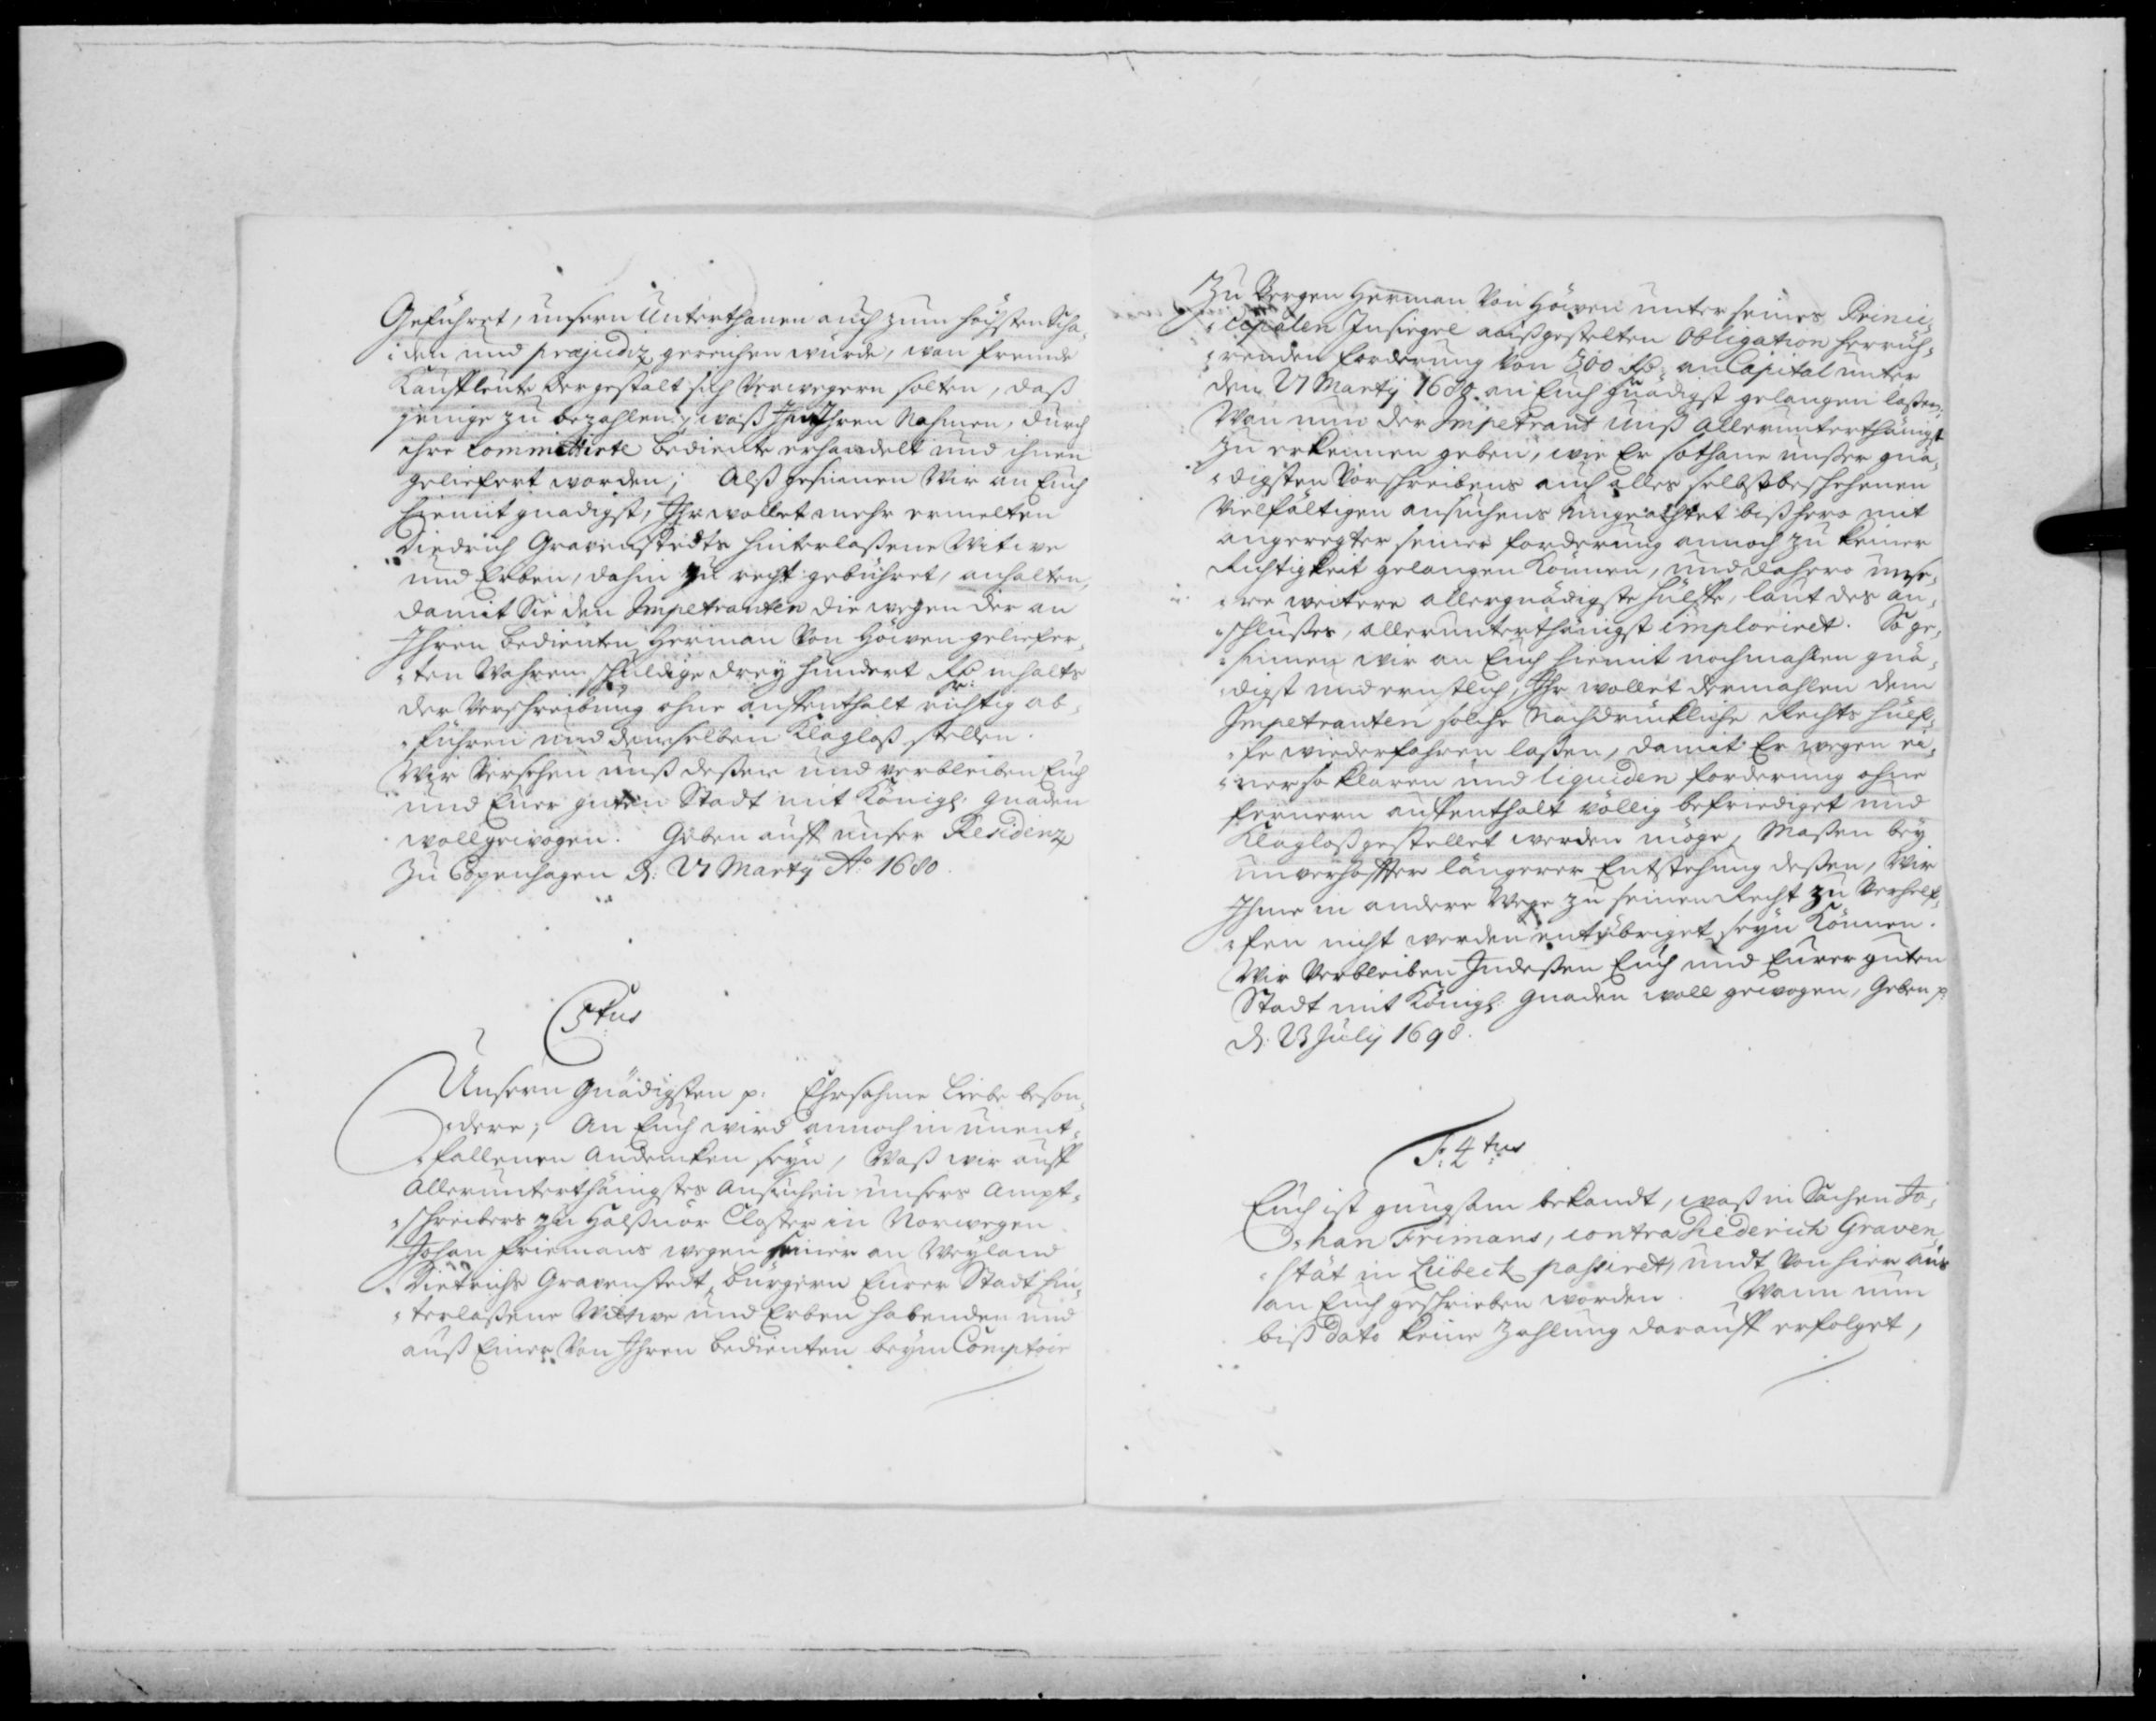 Geführet, unsern Unterthanen auch zum höchsten Scha¬
den und præjudiz gereichen würde, wan fremde
Kauffleute dergestalt sich verwegern solten, daß
jenige zu bezahlen, waß In Ihren Nahmen, durch
ihre Committirte bediente erhandelt und ihnen
geliefert worden; Alß gesinnen Wir an Euch
hiemit gnädigst, Ihr wollet mehr ermelten
Diedrich Gravenstedts hinterlaßene Witwe
und Erben, dahin zu recht gebühret, anhalten,
damit Sie den Impetranten die wegen der an
Ihren bedienten Herman von Höwen geliefer¬
ten Wahren schuldige drey hundert Rthlr: inhalts
der Verschreibung ohne auffenthalt richtig ab¬
führen und demselben Klagloß stellen.
Wir versehen unß deßen und verbleiben Euch
und Euer guten Stadt mit Königl: Gnaden
wollgewogen. Geben auff unser Residenz
zu Copenhagen d: 27 Martÿ Ao 1680.
3tus
Unsern Gnädigsten p. Ehrsahme Liebe beson¬
dere; An Euch wird annoch in unent¬
fallenen Andencken seyn, Waß wir auff
Allerunterthänigstes Ansuchen unsers Ampt¬
schreibers zu Halßnör Closter in Norwegen
Johan Friemans wegen seiner an Weyland
Dietrichs Gravenstedt, bürgern Eurer Stadt hin¬
terlaßene Witwe und Erben habenden und
auß Einer von Ihren bedienten beym Comptoir
zu Bergen Herman von Höwen unter seines Princi¬
cipalen Insiegel außgestelten Obligation herrüh¬
renden forderung von 300 Rthlr: an Capital unter
den 27 Martÿ 1680. an Euch gnädigst gelangen laßen;
Wan nun der Impetrant unß allerunterthänigst
zu erkennen geben, wie Er sothane unser gnä¬
digsten Vorschreibens auch alles selbst beschehenen
vielfältigen ansuchens ungeachtet bißhero mit
angeregter seiner forderung annoch zu keiner
Richtigkeit gelangen können, und dahero unse¬
re weitere allergnädigste hülffe, laut des an¬
schlußes, allerunterthänigst imploriret. So ge¬
sinnen wir an Euch hiemit nochmahlen gnä¬
digst und ernstlich, Ihr wollet dermahlen dem
Impetranten solche Nachdrückliche Rechts hülf¬
fe wiederfahren laßen, damit Er wegen ei¬
ner so klaren und liquiden forderung ohne
fernern auffenthalt völlig befriediget und
Klagloß gestellet werden möge, Maßen bey
unverhoffter längerer Entstehung deßen, Wir
Ihme in andere Wege zu seinen Recht zu verhelf¬
fen nicht werden entübriget seyn können.
Wir verbleiben Indeßen Euch und Eurer guten
Stadt mit Königl: Gnaden woll gewogen, Geben p.
d: 23 July 1698.
4tus
Euch ist gungsam bekandt, waß in Sachen Jo¬
han Frimans, contra Diederich Graven¬
stät in Lübeck passiret, undt von hier aus
an Euch geschrieben worden. Wann nun
biß dato keine Zahlung darauff erfolget,